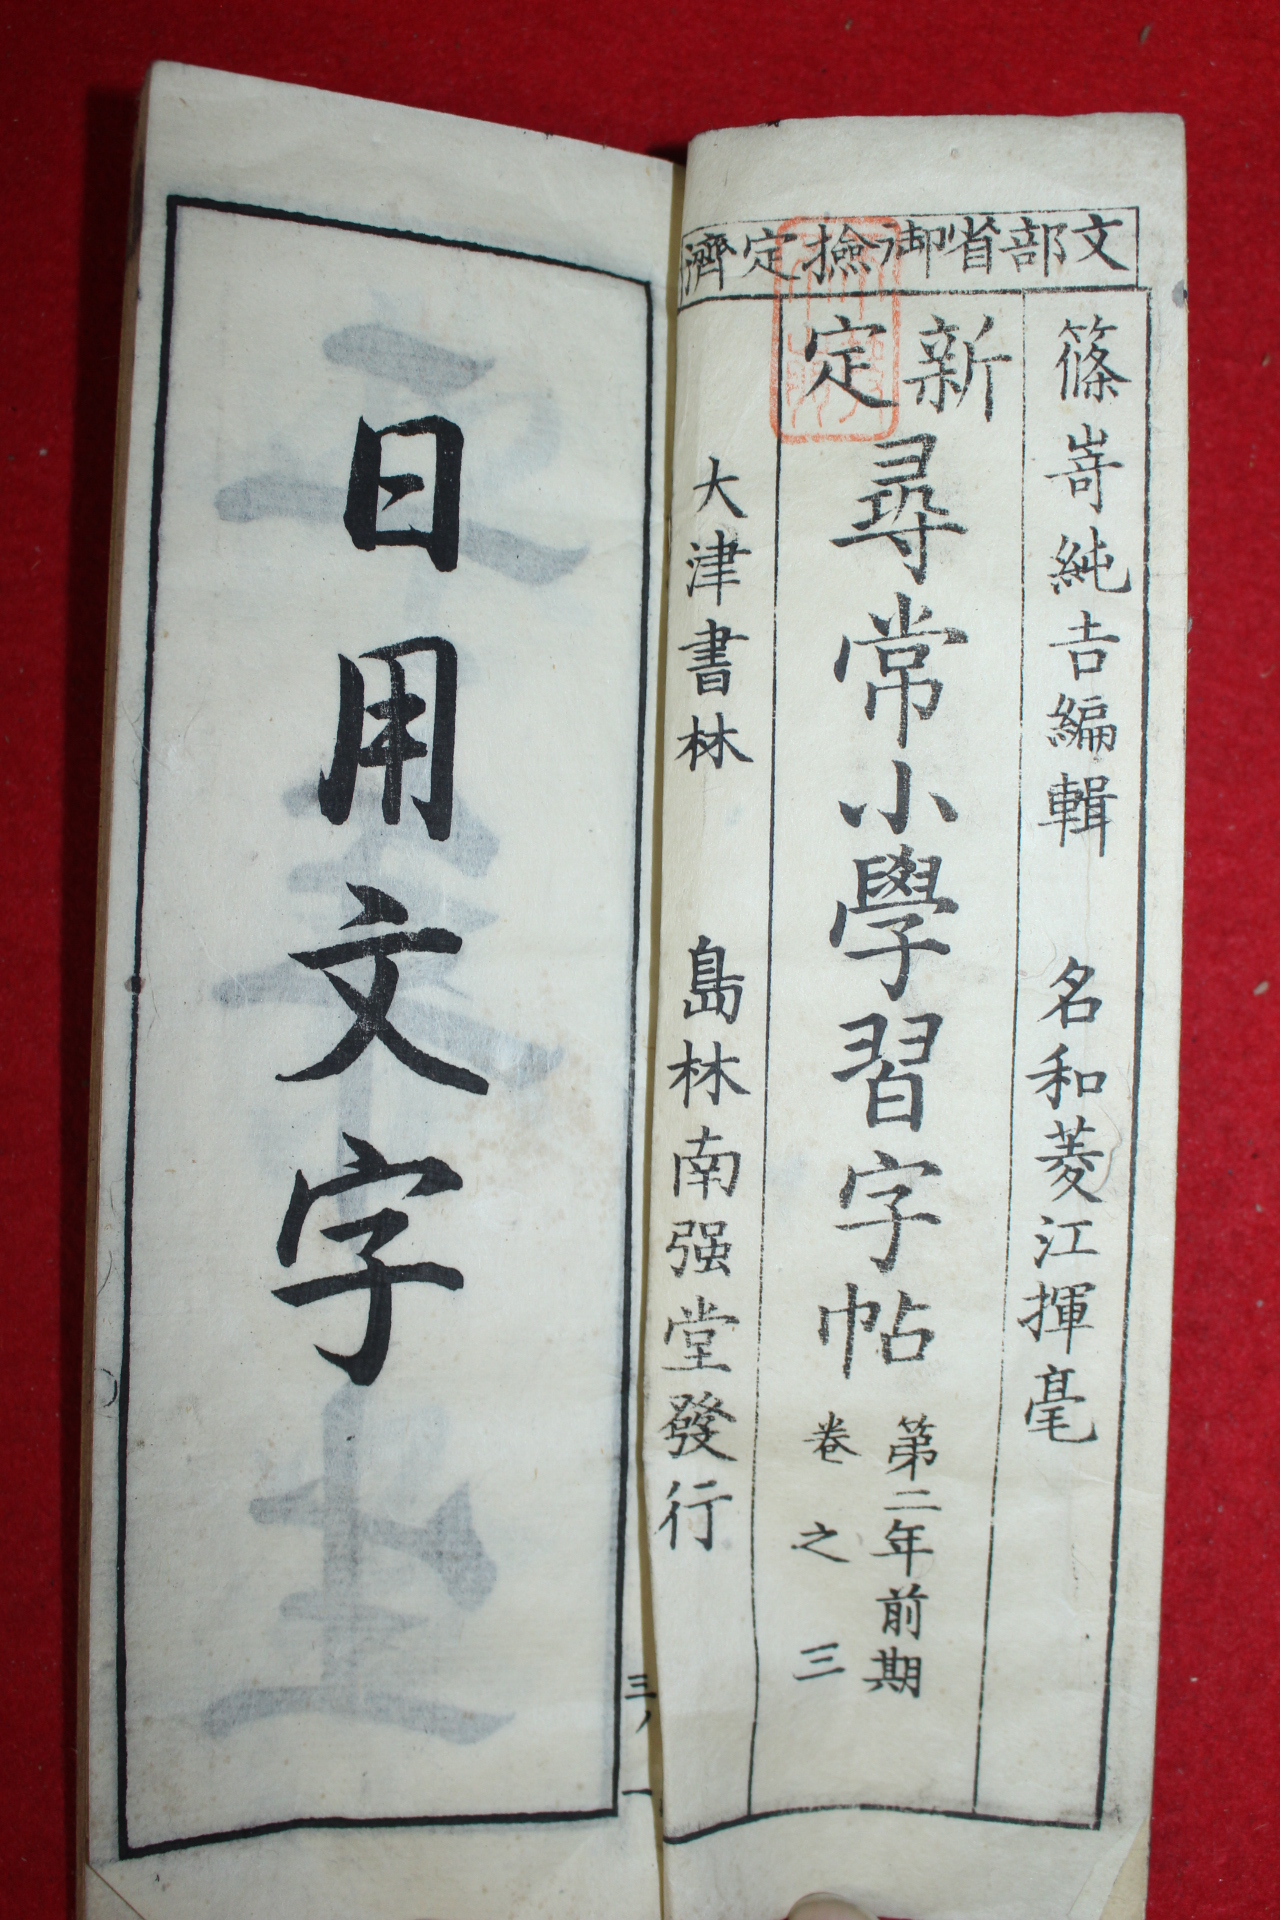 文部省御檢定濟
篠嵜純吉編輯 名和菱江揮毫
新定
尋常小學習字帖
第二年前期
卷之三
大津書林 島林南强堂發行
日用文字
三ノ一